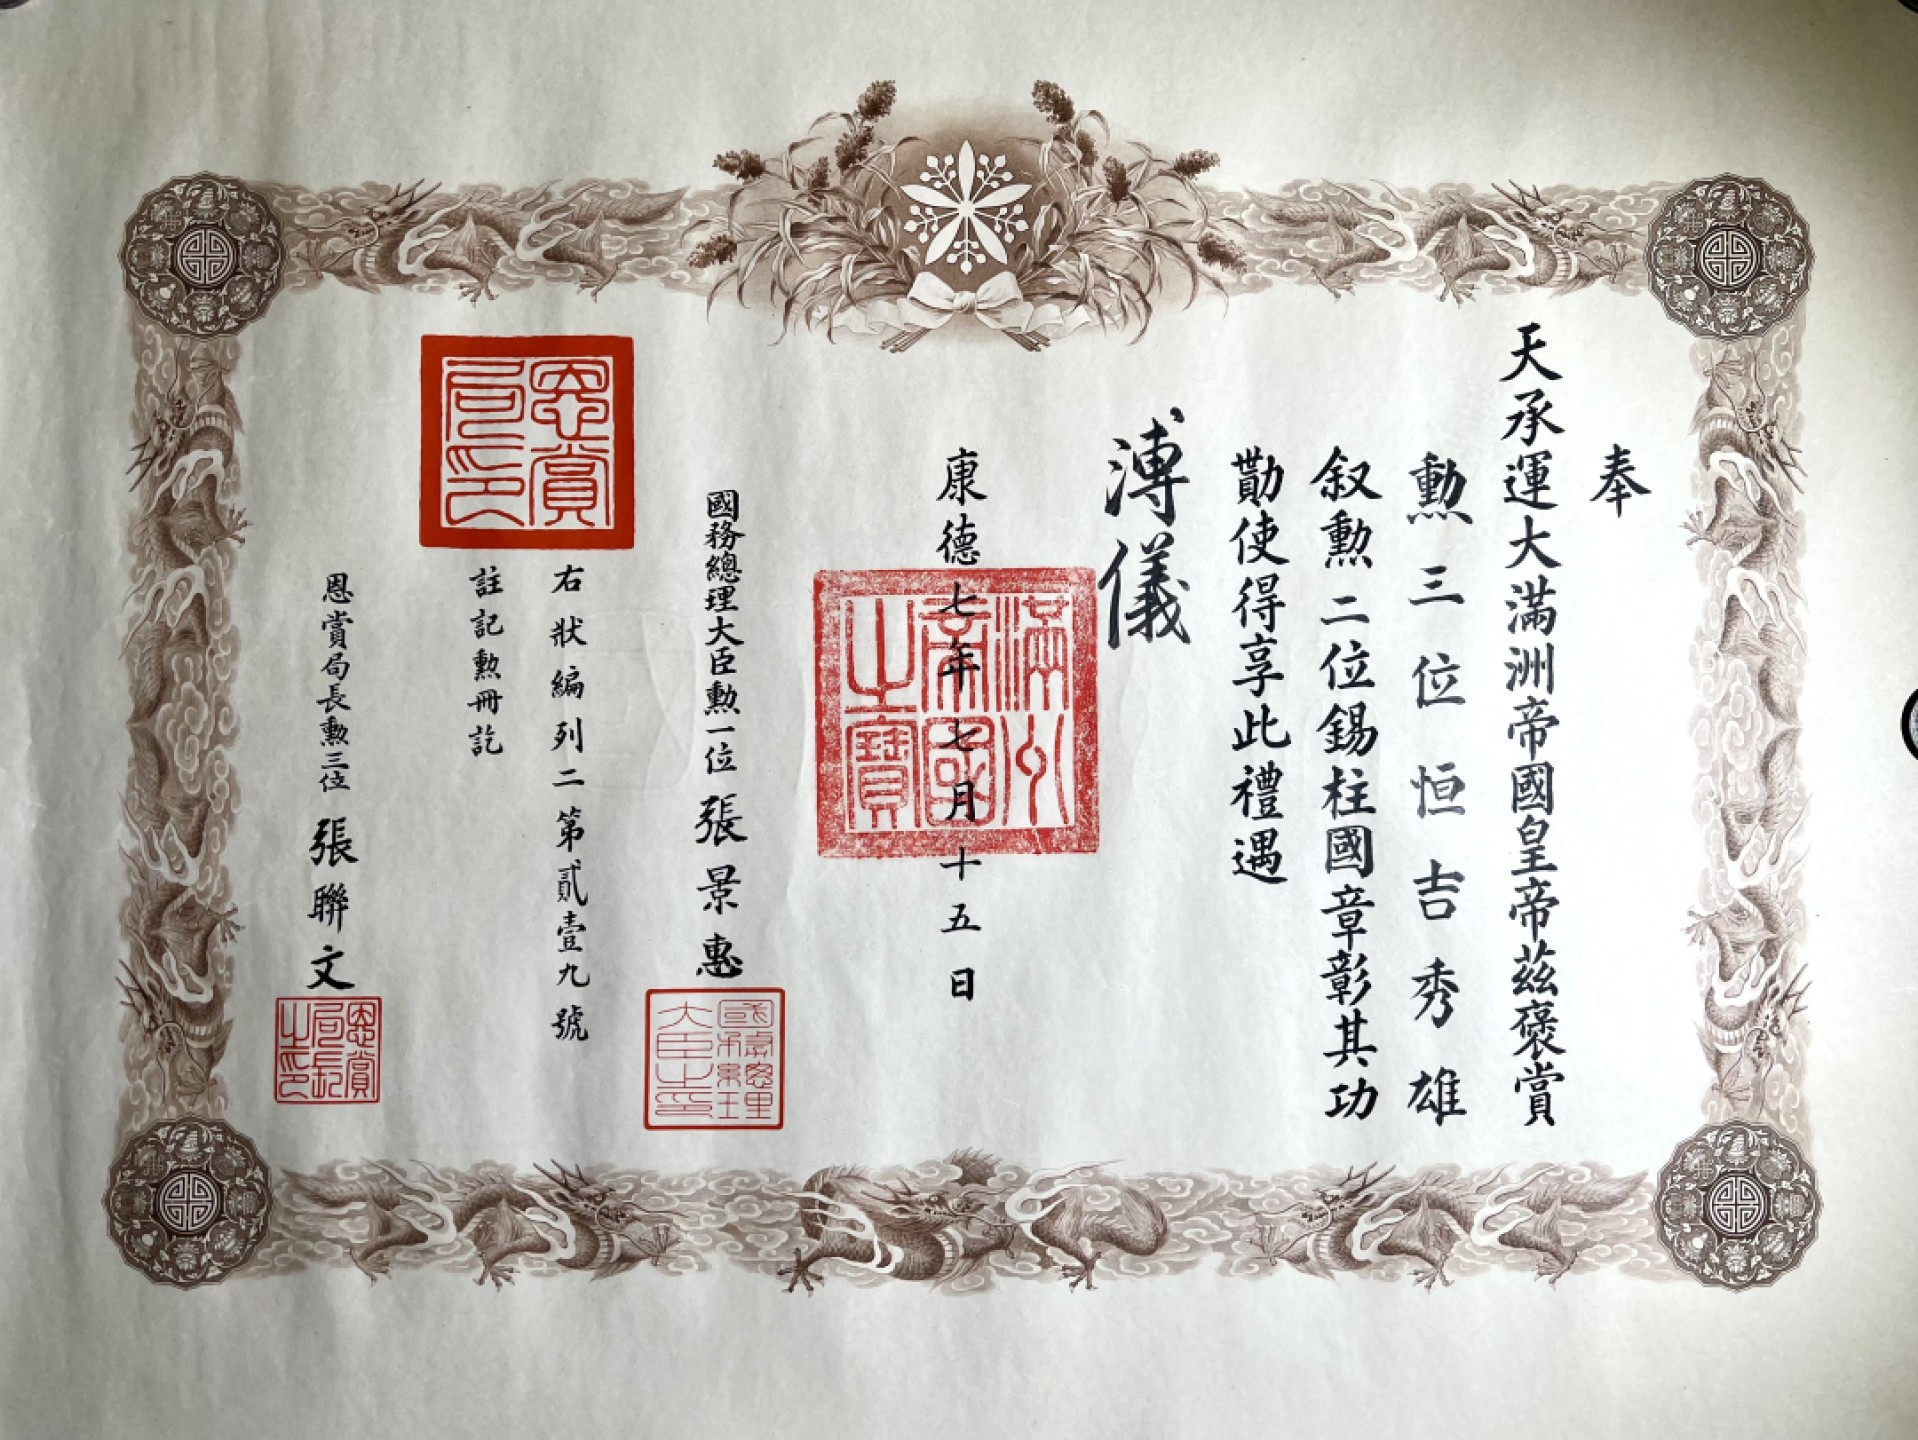 奉
天承運大滿洲帝國皇帝茲褒賞
勲三位恒吉秀雄
叙勲二位錫柱國章彰其功
勩使得享此禮遇
溥儀
康德七年七月十五日
滿洲
帝國
之寶
國務總理大臣勲一位張景惠
國務總理
大臣之印
右狀編列二第貳壹九號
註記勲冊訖
恩賞
局印
恩賞局長勲三位張聯文
恩賞
局長
之印